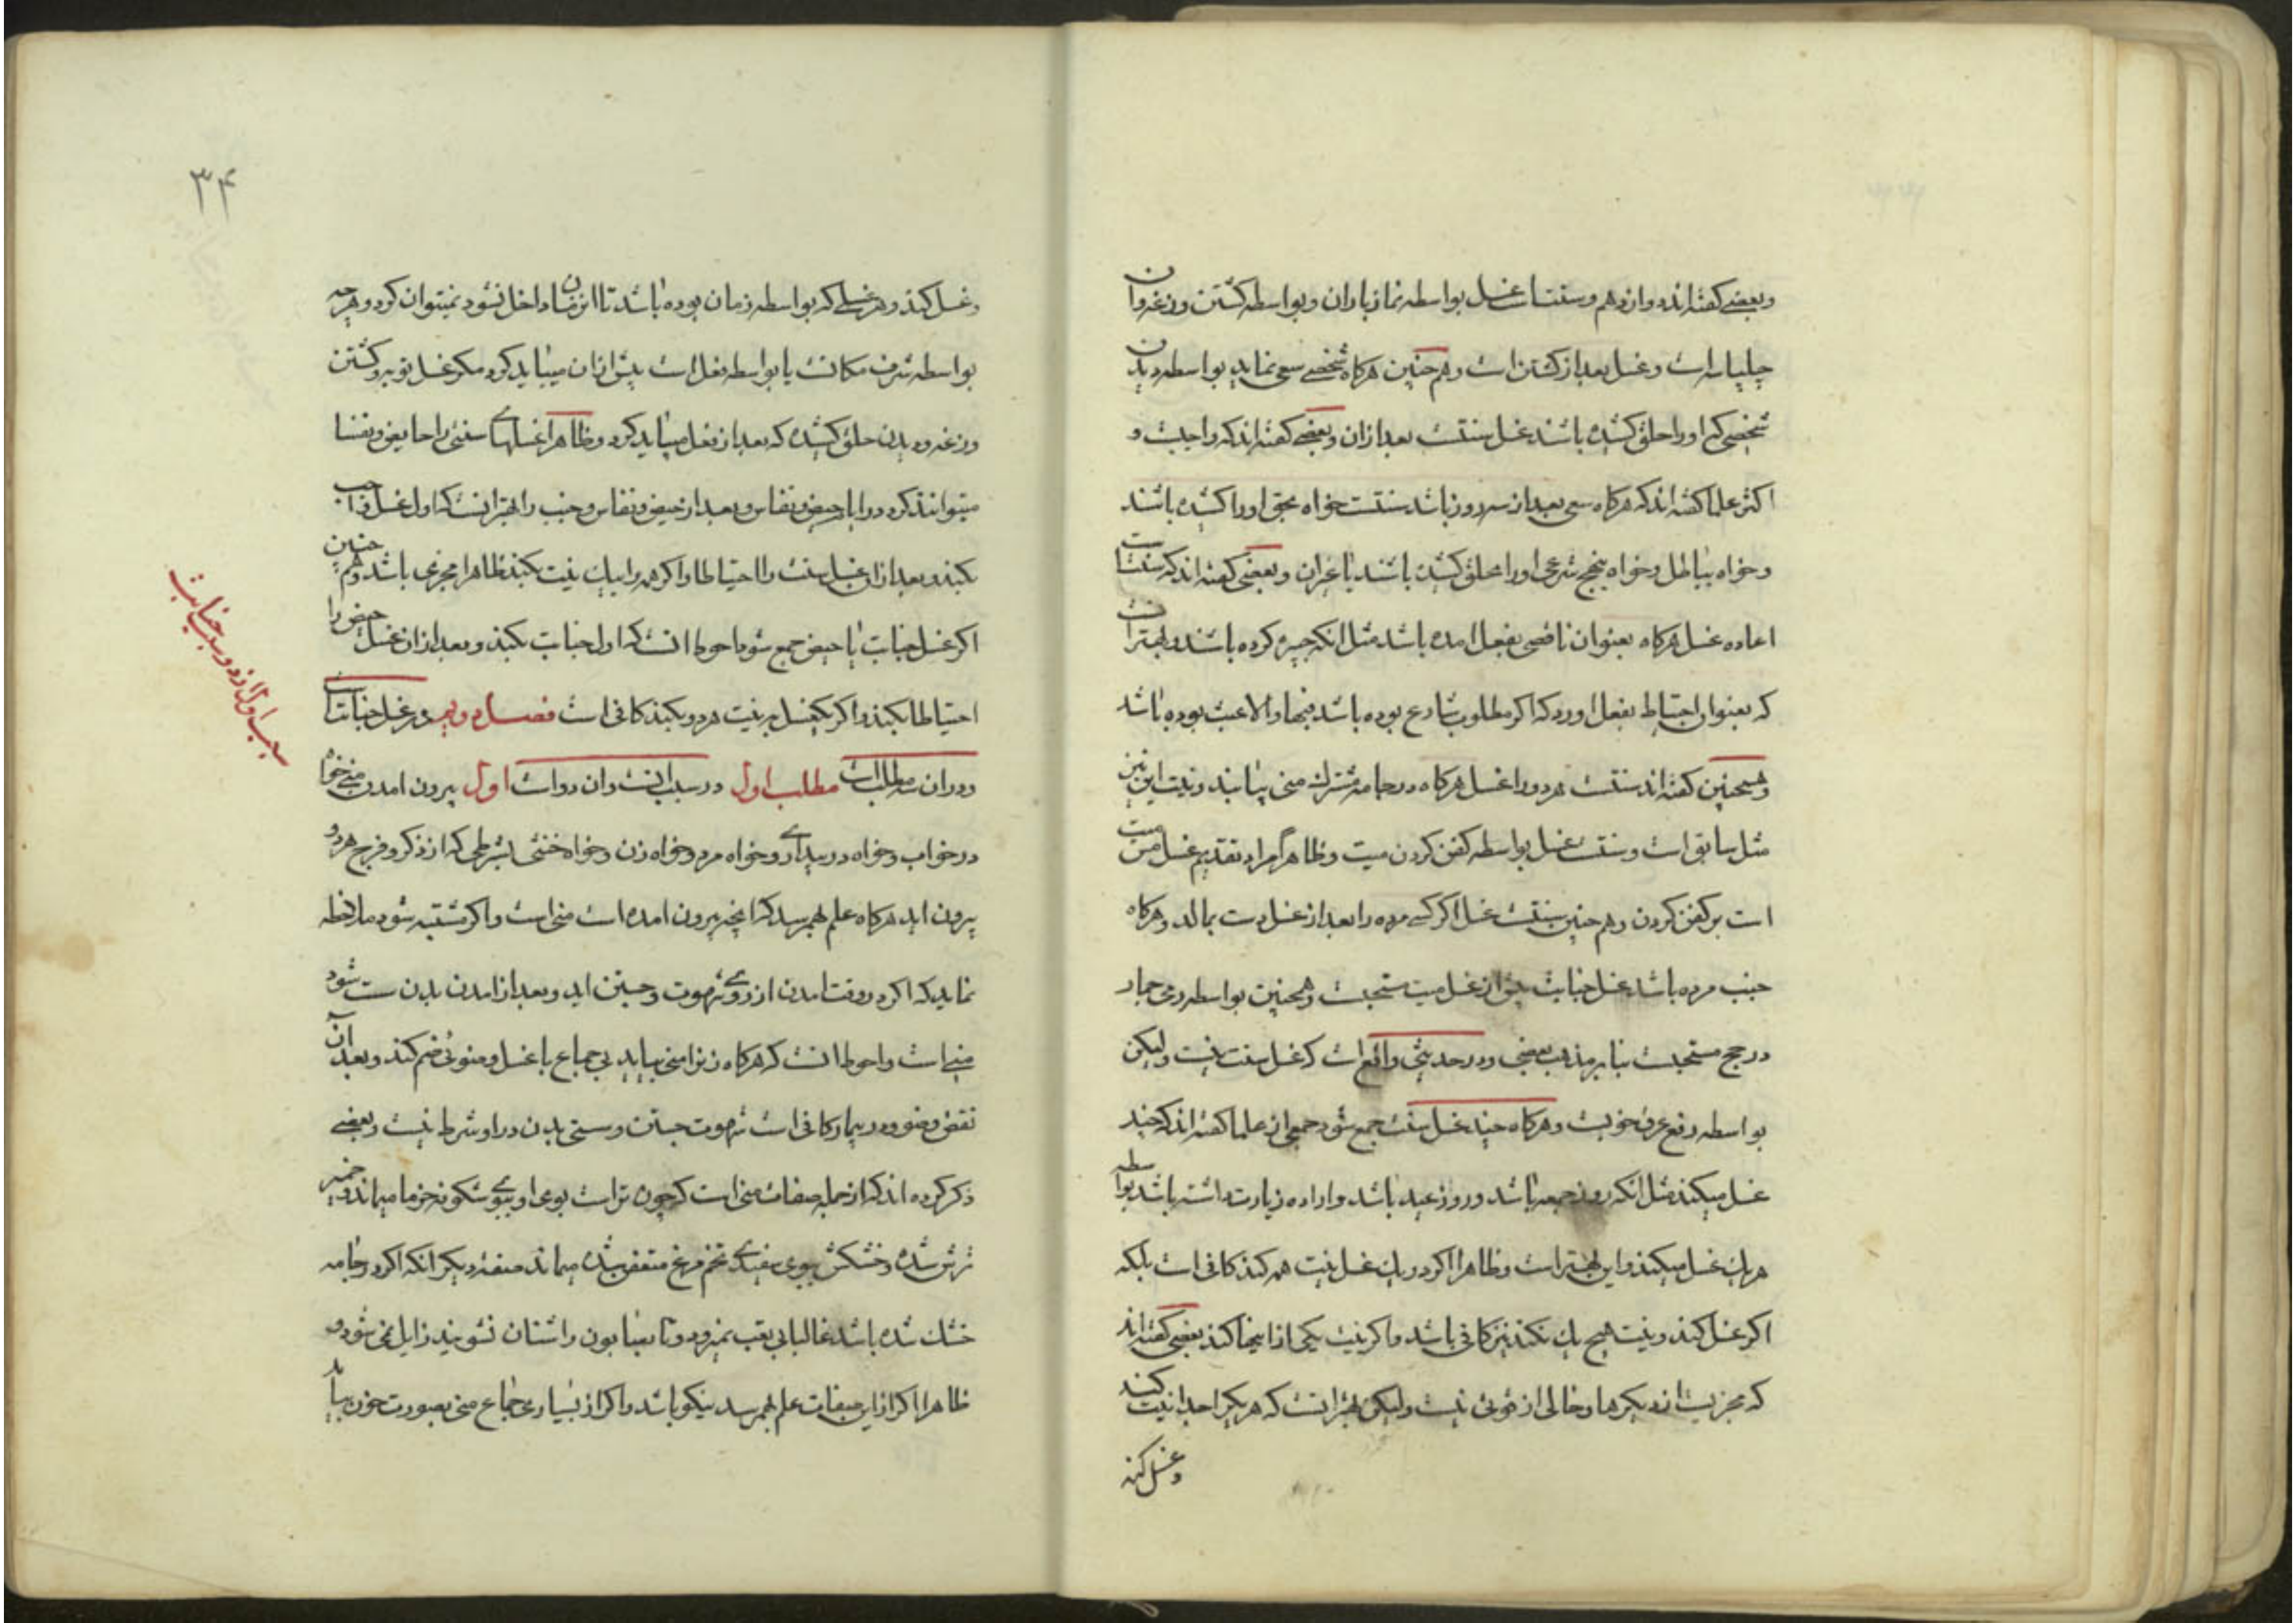 و بعضی کفته‌اند دوازدهم و سنتست غسل بواسطه نماز باران و بواسطه کشتن وزغه و ان
چلپاسه است و غسل بعد از کشتن است و هم چنین هرکاه شخصی سعی نماید بواسطه دیدن
شخصی که او را حلق کشیده باشند غسل سنتست بعد از ان و بعضی کفته‌اند که واجبست و
اکثر علما کفته‌اند که هرکاه سعی بعد از سه روز باشد سنتست خواه بحق او را کشیده باشند
و خواه بباطل و خواه بنهج شرعی او را بحلق کشیده باشند یا غیر ان و بعضی کفته‌اند که سنتست
اعاده غسل هرکاه بعنوان ناقصی بفعل امده باشد مثل انکه جبیره کرده باشند و بهتر انست
که بعنوان احتیاط بفعل اورد که اکر مطلوب شارع بوده باشد فبها و الا عبث بوده باشد
و همچنین کفته‌اند سنتست هر دو را غسل هرکاه در جامه مشترک منی بیابند و نیت این نیز
مثل سابق است و سنتست غسل بواسطه کفن کردن میت و ظاهرا مراد تقدیم غسل مس میت
است بر کفن کردن و هم چنین سنتست غسل اکر کسی مرده را بعد از غسل دست بمالد و هرکاه
جنب مرده باشد غسل جنابت پیش از غسل میت مستحبست و همچنین بواسطه رمی جمار
در حج مستحبست بنا بر مذهب بعضی و در حدیثی واقع است که غسل سنت نیست ولیکن
بواسطه رفع عرق خوبست و هرکاه چند غسل سنت جمع شود جمعی از علما کفته‌اند که چند
غسل میکند مثل انکه روز جمعه باشد و روز عید باشد و اراده زیارت داشته باشد بواسطه
هر یک غسل میکند و این بهتر است و ظاهرا اکر در یک غسل نیت همه کند کافی است بلکه
اکر غسل کند و نیت هیچ یک نکند نیز کافی باشد و اکر نیت یکی از اینها کند بعضی کفته‌اند
که مجزیست از دیکرها و خالی از قوتی نیست ولیکن بهتر انست که هر یک را جدا نیت کند
و غسل کند
۳۴
و غسل کند و هر غسلی که بواسطه زمان بوده باشد تا ان زمان داخل نشود نمیتوان کرد و هر چه
بواسطه شرف مکانست یا بواسطه فعل است پیش از ان میباید کرد مکر غسل توبه و کشتن
وزغه و دیدن حلق کشیده که بعد از فعل میباید کرد و ظاهرا غسلهای سنتی را حایض و نفسا
میتوانند کرد در ایام حیض و نفاس و بعد از حیض و نفاس و جنب را بهتر انست که اول غسل واجب
بکند و بعد از ان غسل سنت را احتیاطا و اکر همه را بیک نیت بکند ظاهرا مجزی باشد و هم چنین
اکر غسل جنابت با حیض جمع شود احوط انست که اول جنابت بکند و بعد از ان غسل حیض را
احتیاطا بکند و اکر یکغسل به نیت هر دو بکند کافی است فصل دویم در غسل جنابتست
و در ان سه مطلب است مطلب اول در سبب انست و ان دو است اول بیرون امدن منی خواه
در خواب و خواه در بیداری و خواه مرد و خواه زن و خواه خنثی بشرطی که از ذکر و فرج هر دو
بیرون اید هرکاه علم بهمرسد که انچه بیرون امده است منی است و اکر مشتبه شود ملاحظه
نماید که اکر در وقت امدن از روی شهوت و جستن اید و بعد از امدن بدن سست شود
منی است و احوط انست که هرکاه زن را منی بیاید بی جماع با غسل وضوئی ضم کند و بعد از ان
نقض وضو و در بیمار کافی است شهوت جستن و سستی بدن در او شرط نیست و بعضی
ذکر کرده‌اند که از جمله صفات منی است که چون تر است بوی او ببوی شکوفه خرما میماند و خمیر
ترش شده و خشکش ببوی سفیدی تخم مرغ متعفن شده میماند صفت دیکر انکه اکر در جامه
خشک شده باشد غالبا بی تعب نمیرود و تا بصابون و اشنان نشویند زایل نمی شود و
ظاهرا اکر از این صفات علم بهمرسد نیکو باشد و اکر از بسیاری جماع منی بصورت خون بیاید
سبب اول از دو سبب جنابت